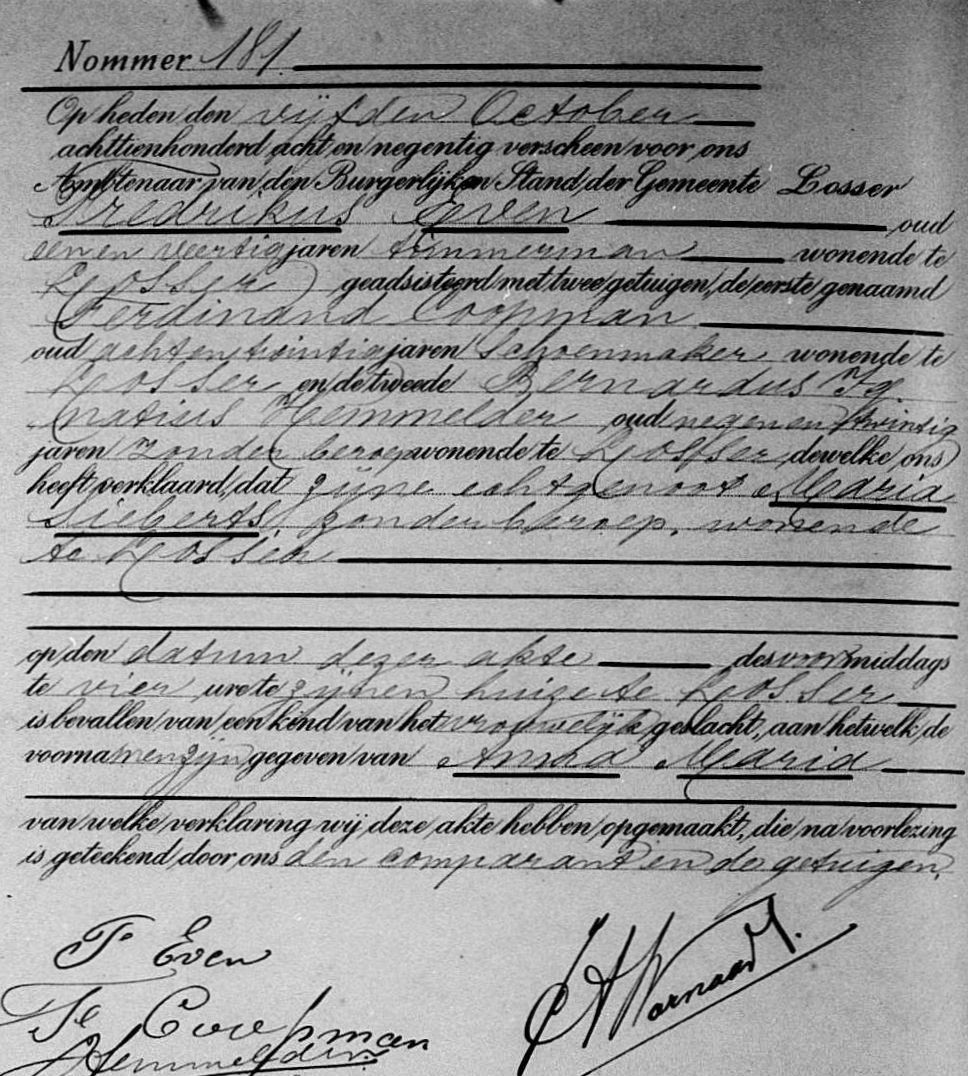 Nommer 181.
Op heden den vijfden October
achttienhonderd acht en negentig verscheen voor ons
Ambtenaar van den Burgerlijken Stand der Gemeente Losser
Fredrikus Even oud
een en veertig jaren timmerman wonende te
Losser geadsisteerd met twee getuigen, de eerste genaamd
Ferdinand Coopman
oud achtentwintig jaren Schoenmaker wonende te
Losser en de tweede Bernardus Ig
natius Hemmelder oud negenentwintig
jaren zonder beroep wonende te Losser, dewelke ons
heeft verklaard, dat zijne echtgenoot Maria
Sieberts, zonder beroep, wonende
te Losser
op den datum dezer akte des voormiddags
te vier ure te zijnen huize te Losser
is bevallen van een kind van het vrouwelijk geslacht, aan hetwelk de
voornamen zijn gegeven van Anna Maria
van welke verklaring wij deze akte hebben opgemaakt, die na voorlezing
is geteekend door ons den comparant en de getuigen.
F Even
Fe Coopman
Hemmelder